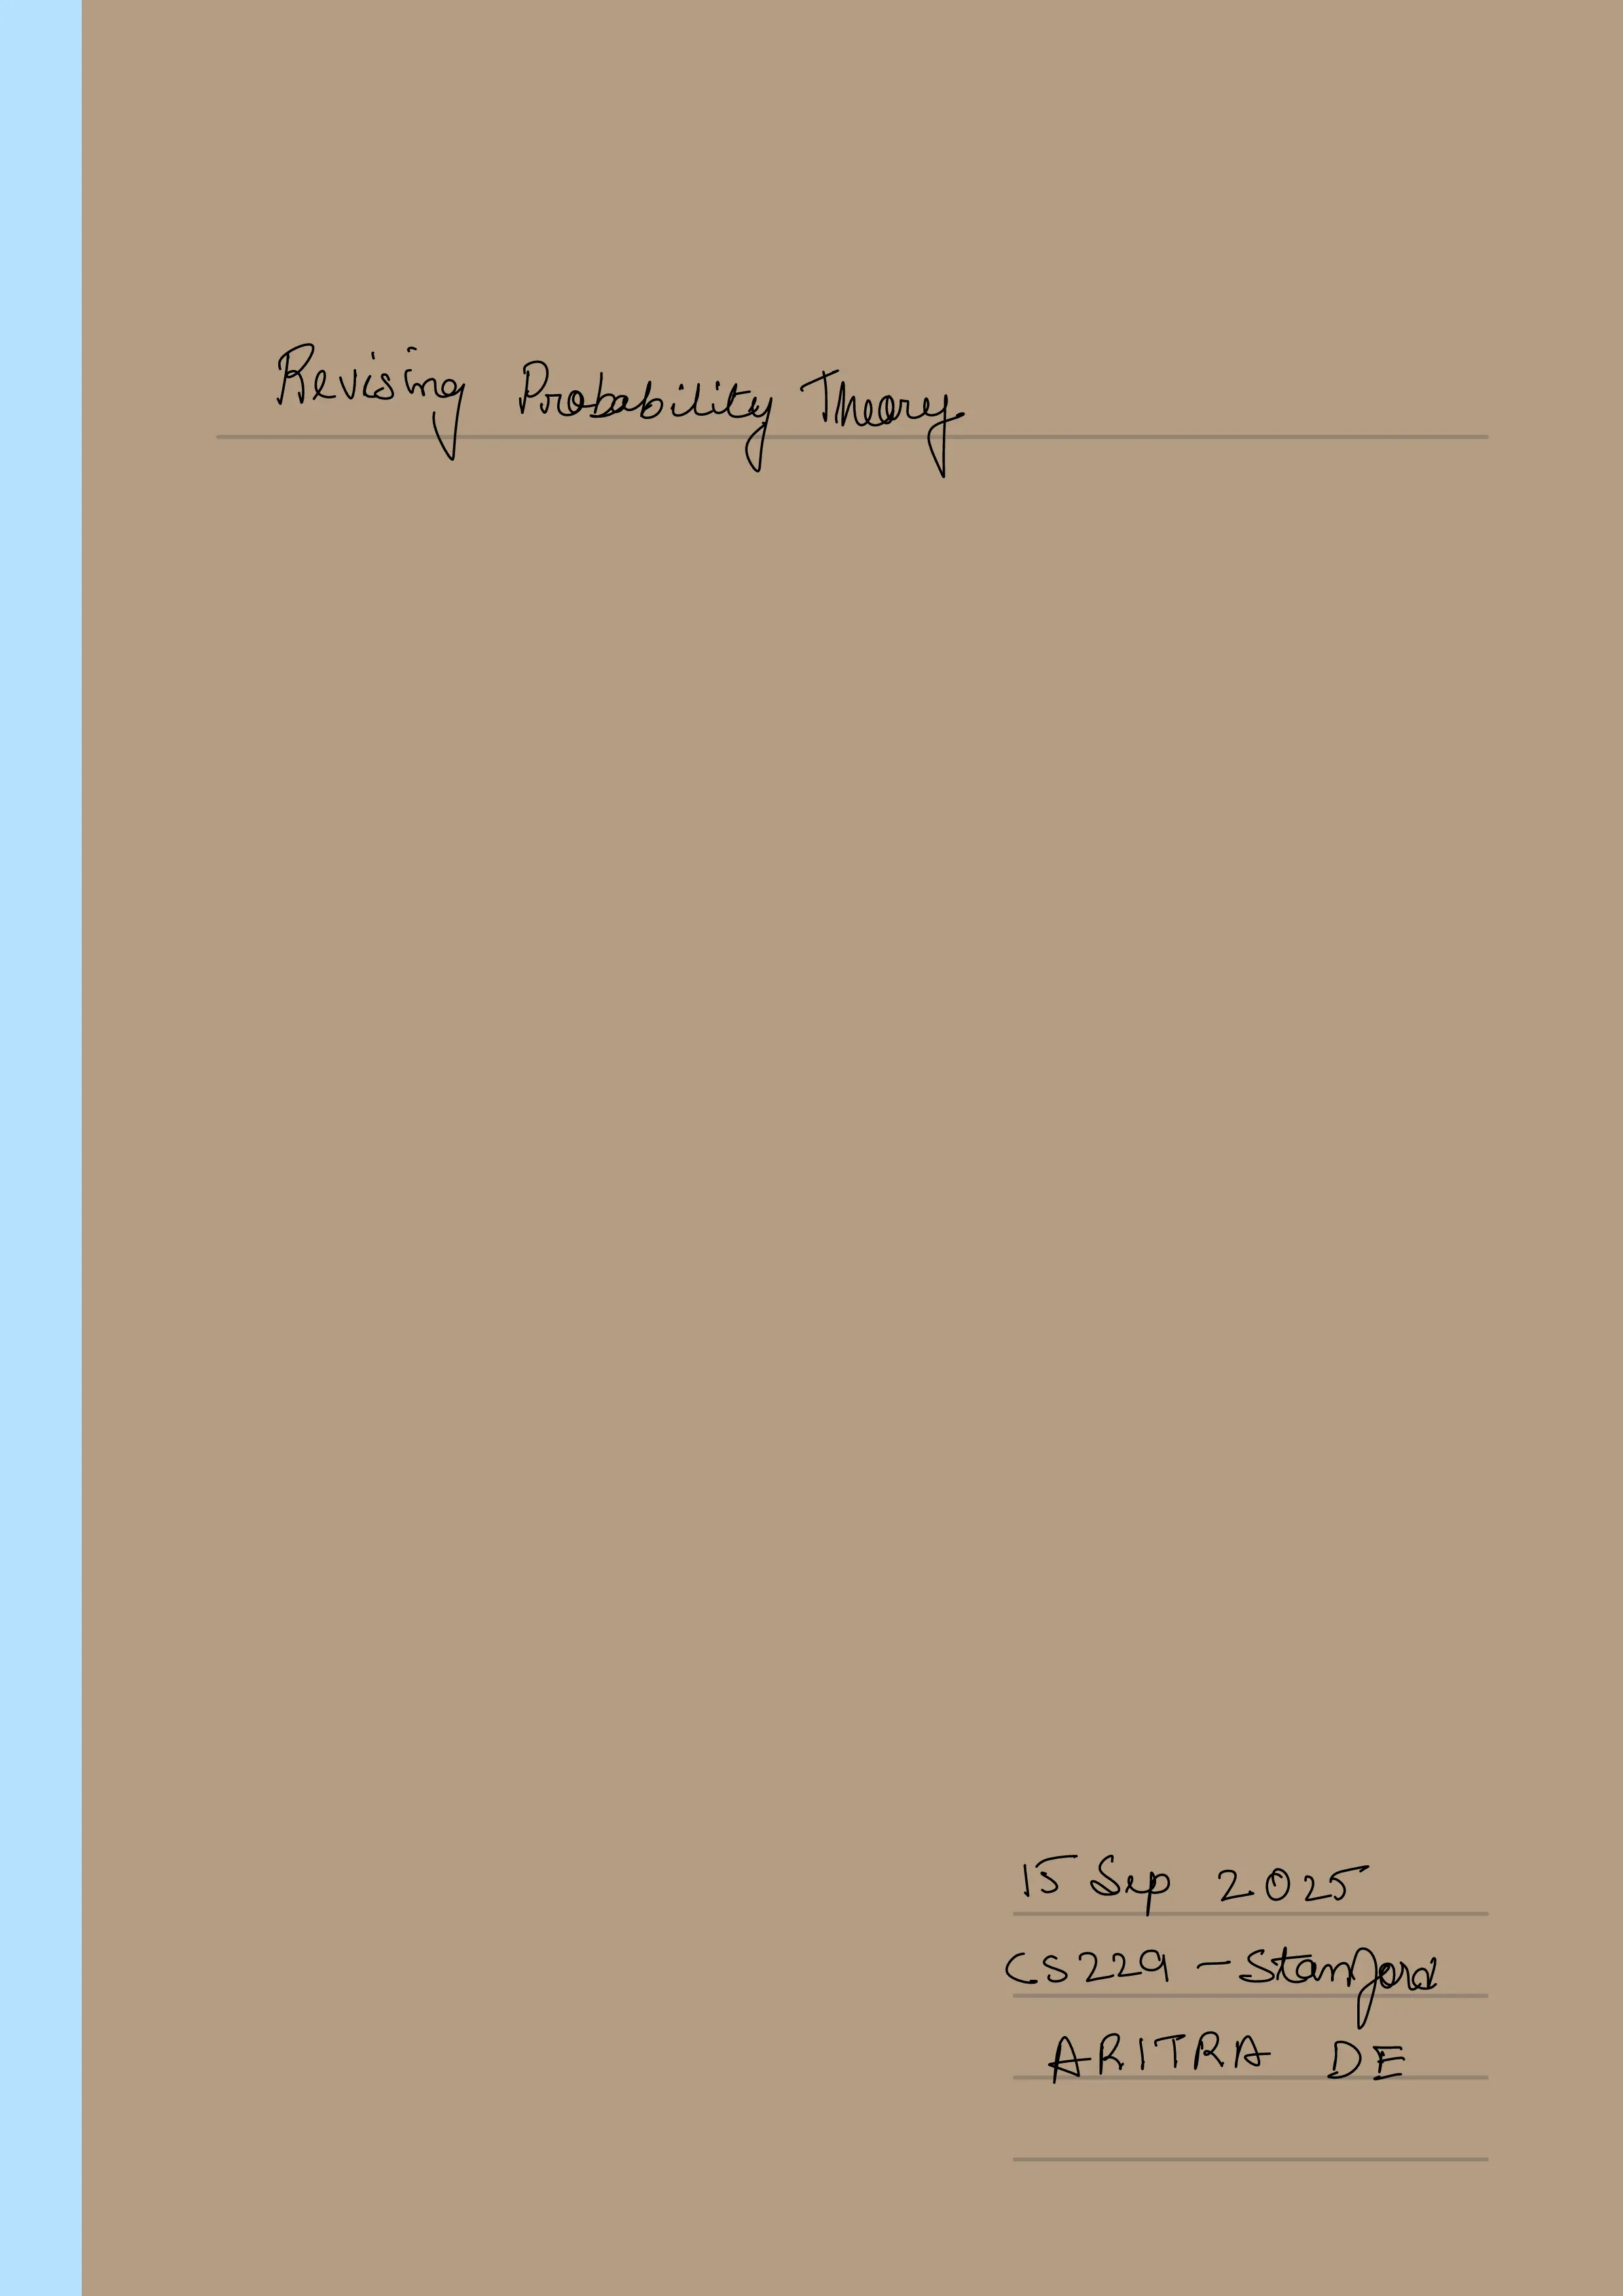 Revising Probability Theory
15 Sep 2025
CS229 - Stanford
ARITRA DE